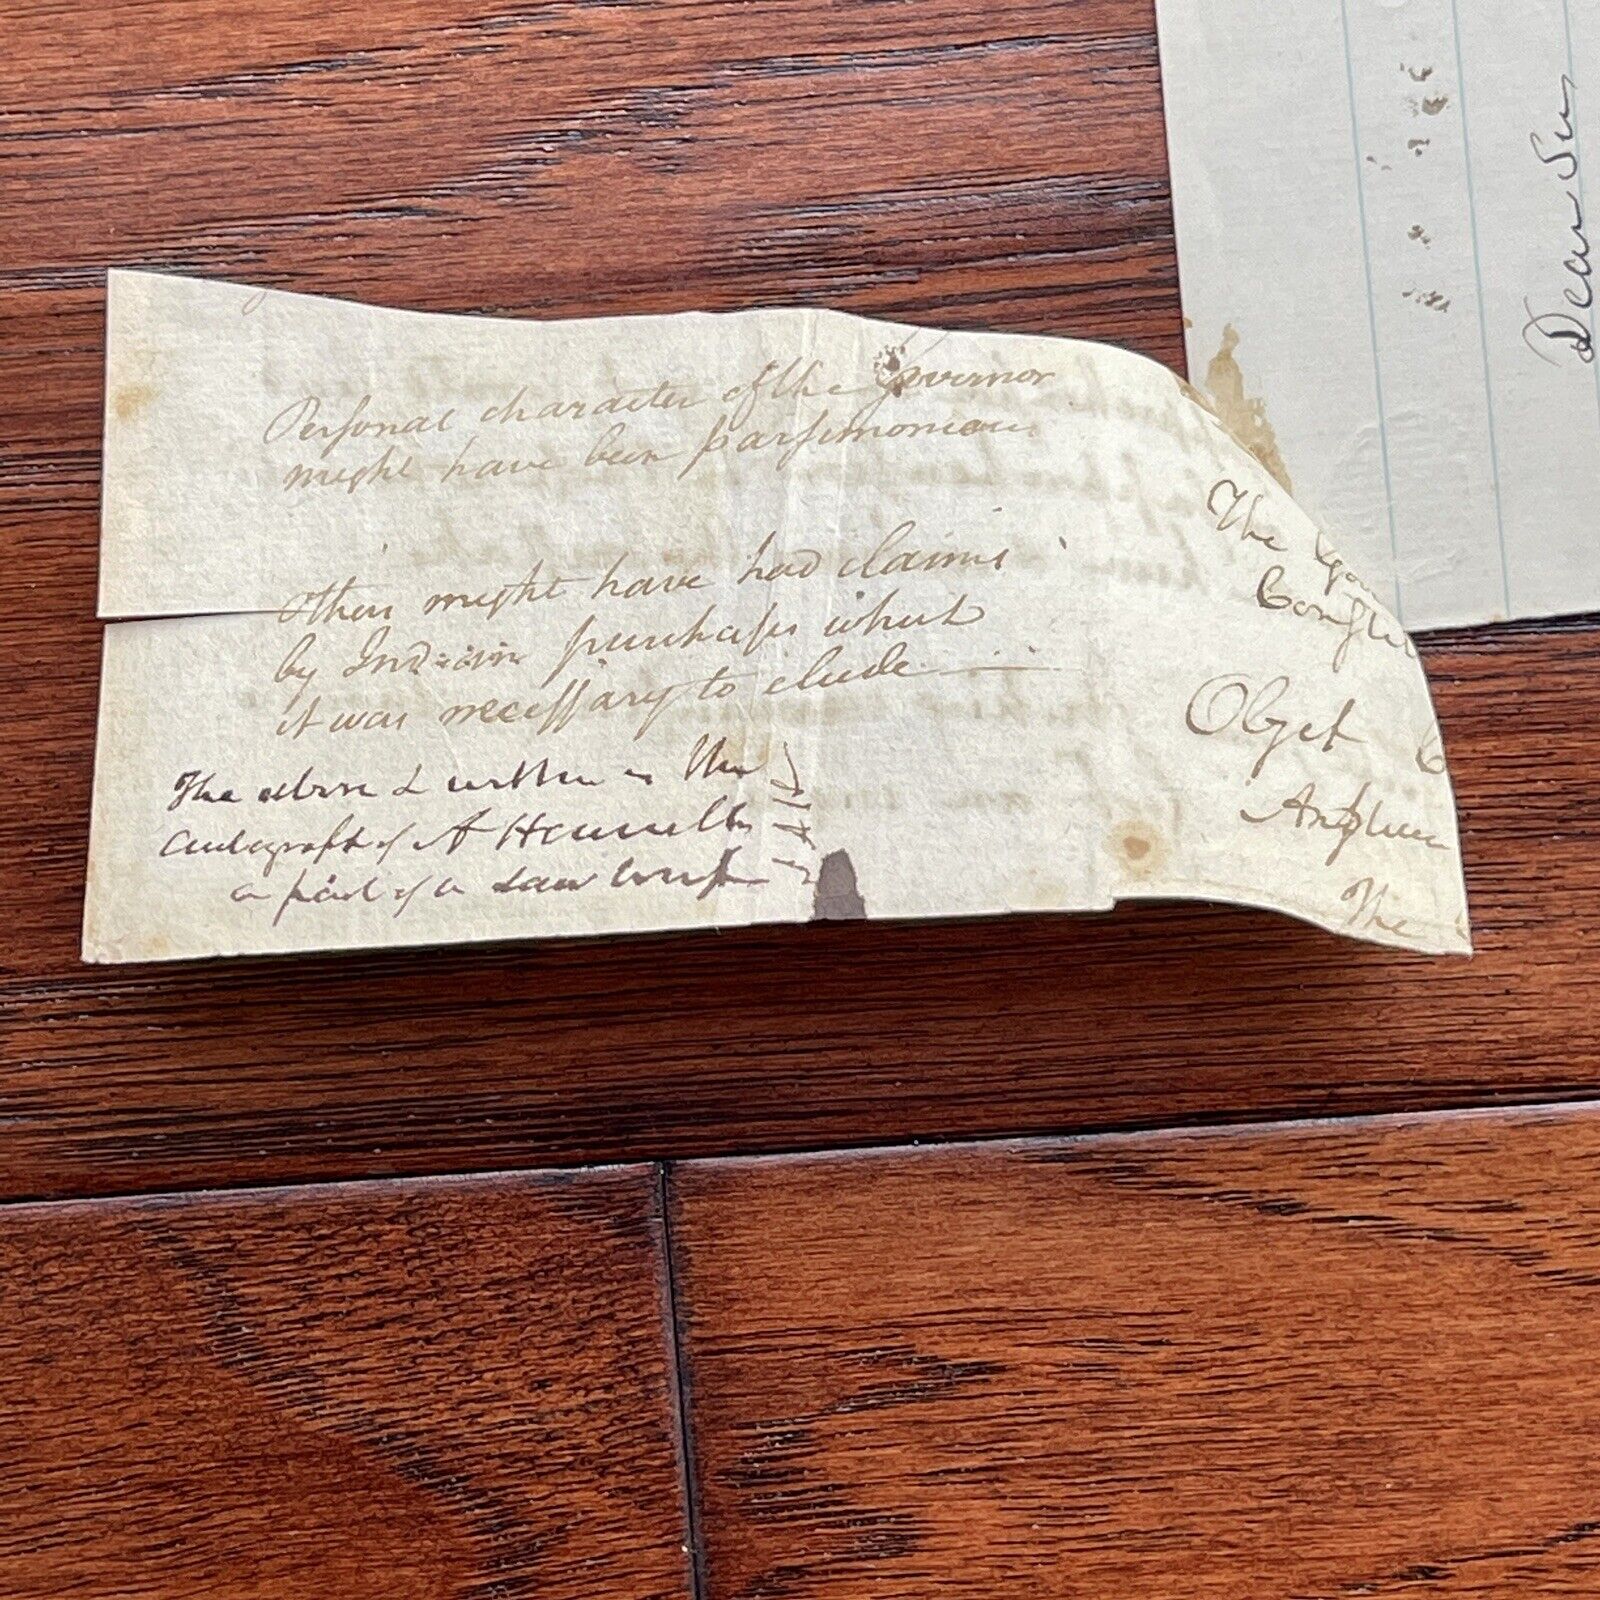 Personal character of the Governor
might have been parsimonious
Others might have had claims
by Indian purchases which
it was necessary to elude
The above & written is the
autograph of A Hamilton
a part of a Law brief
The
Object
The
Dear Sir,